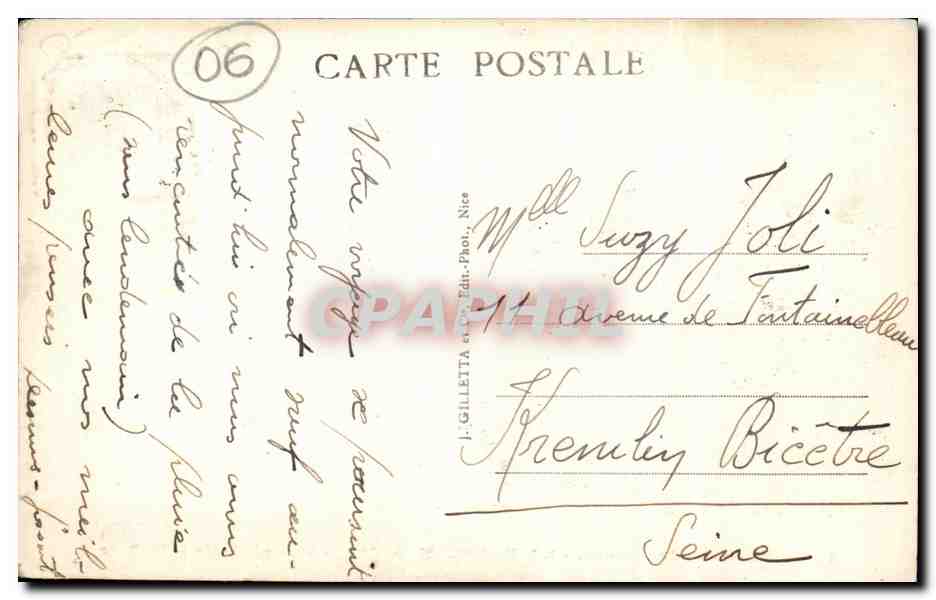 06
CARTE POSTALE
Votre voyage se poursuit
normalement sauf au-
jourd'hui où nous avons
rencontré de la pluie
(sans lendemain)
avec nos meil-
leures pensées
J. GILLETTA et Cie, Edit.-Phot., Nice
CPAPHIL
Mlle Suzy Joli
11 avenue de Fontainebleau
Kremlin Bicêtre
Seine